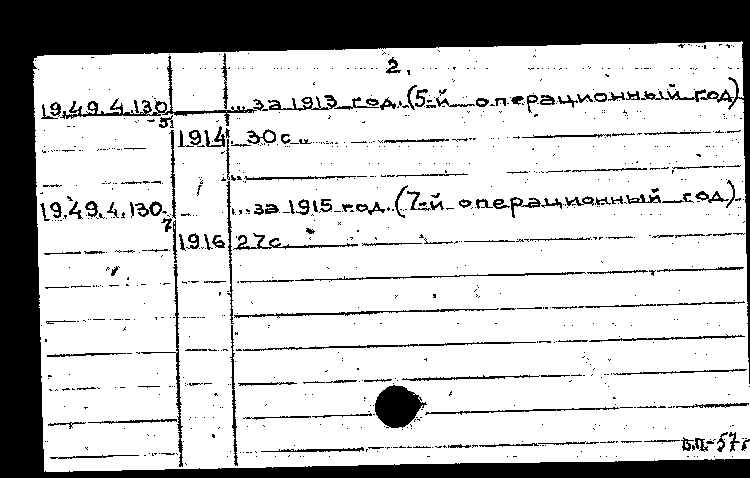 2.
19.49.4.130 ... за 1913 год. (5-й операционный год)
-5
1914. 30с.
19.49.4.130- ... за 1915 год. (7-й операционный год)
7
1916 27с.
57г